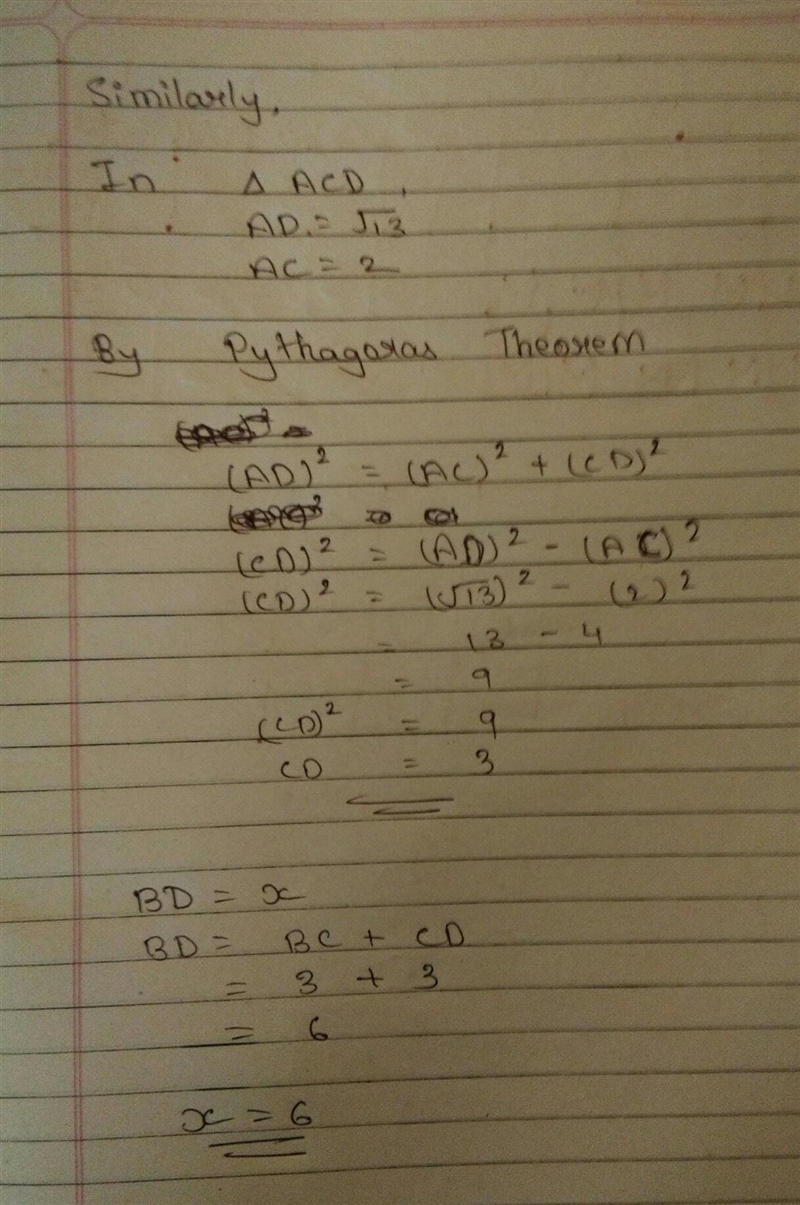 Similarly,
In Δ ACD,
AD = √13
AC = 2
By Pythagoras Theorem
(AD)² = (AC)² + (CD)²
(CD)² = (AD)² - (AC)²
(CD)² = (√13)² - (2)²
= 13 - 4
= 9
(CD)² = 9
CD = 3
BD = x
BD = BC + CD
= 3 + 3
= 6
x = 6